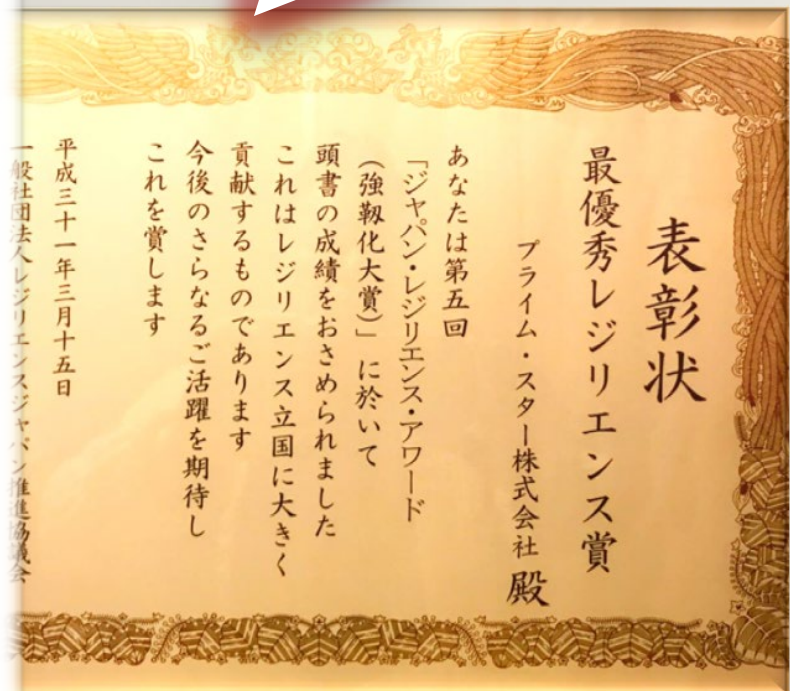 表彰状
最優秀レジリエンス賞
プライム・スター株式会社 殿
あなたは第五回
「ジャパン・レジリエンス・アワード
(強靱化大賞)」に於いて
頭書の成績をおさめられました
これはレジリエンス立国に大きく
貢献するものであります
今後のさらなるご活躍を期待し
これを賞します
平成三十一年三月十五日
一般社団法人レジリエンスジャパン推進協議会